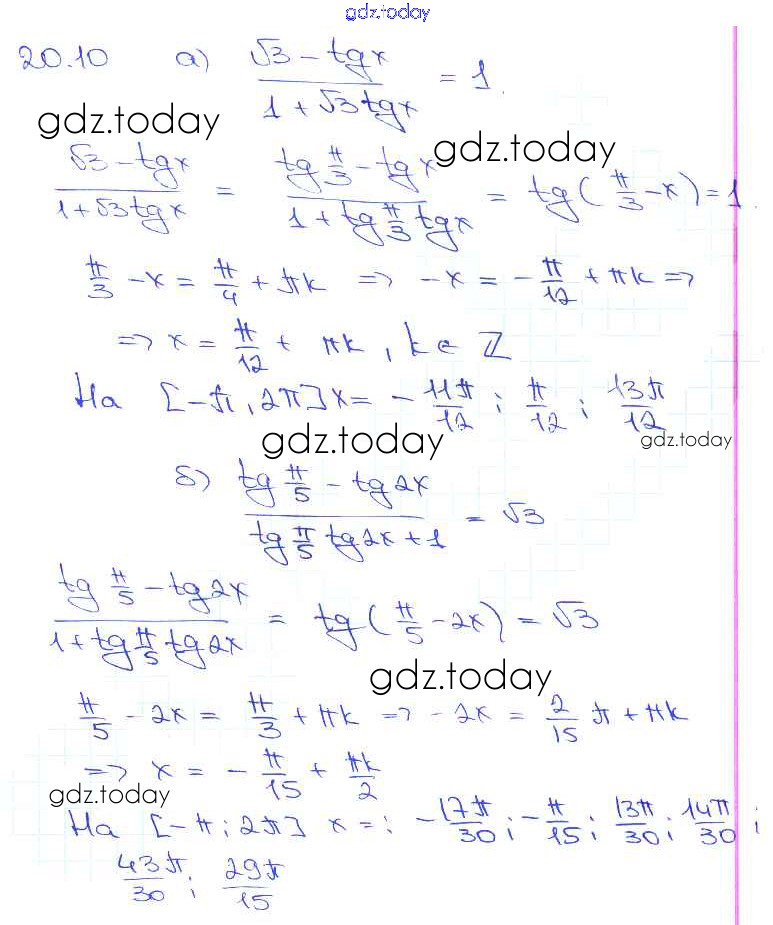 gdz.today
20.10 а) (√3 - tgx)/(1 + √3tgx) = 1.
gdz.today
gdz.today
(√3 - tgx)/(1+√3tgx) = (tg π/3 - tgx)/(1 + tg π/3 tgx) = tg(π/3 - x) = 1.
π/3 - x = π/4 + πk => -x = -π/12 + πk =>
=> x = π/12 + πk, k ∈ ℤ
На [-π, 2π] x = -11π/12; π/12; 13π/12
gdz.today
gdz.today
б) (tg π/5 - tg2x)/(tg π/5 tg2x + 1) = √3
(tg π/5 - tg2x)/(1 + tg π/5 tg2x) = tg(π/5 - 2x) = √3
gdz.today
π/5 - 2x = π/3 + πk => -2x = 2/15 π + πk
=> x = -π/15 + πk/2
gdz.today
На [-π; 2π] x =: -17π/30; -π/15; 13π/30; 14π/30;
43π/30; 29π/15